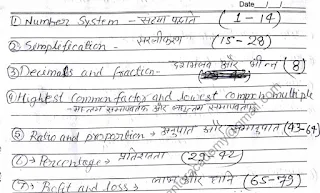 Date
① Number System - संख्या पद्धति (1-14)
② Simplification - सरलीकरण (15-28)
③ Decimals and fraction - दशमलव और भिन्न (8)
④ Highest common factor and lowest common multiple
- महत्तम समापवर्तक और लघुत्तम समापवर्त्य
⑤ Ratio and proportion → अनुपात और समानुपात (43-64)
⑥ → Percentage → प्रतिशतता (29-42)
⑦ → Profit and loss → लाभ और हानि (65-79)